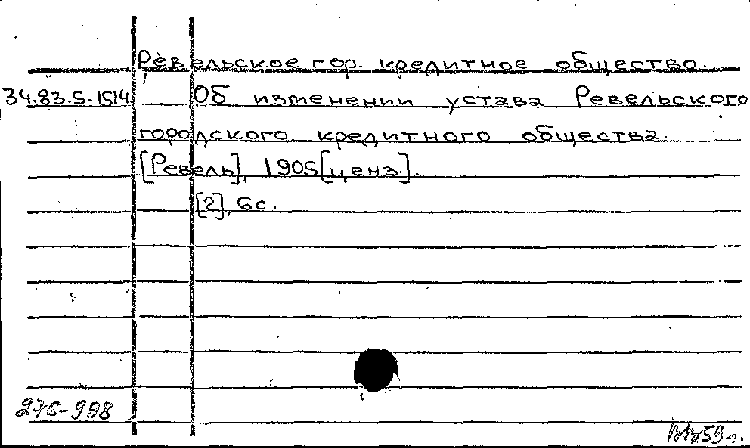 Ревельское гор. кредитное общество.
34.83.5.1514 Об изменении устава Ревельского
городского кредитного общества.
[Ревель], 1905 [ценз.].
[2], 6с.
276-998